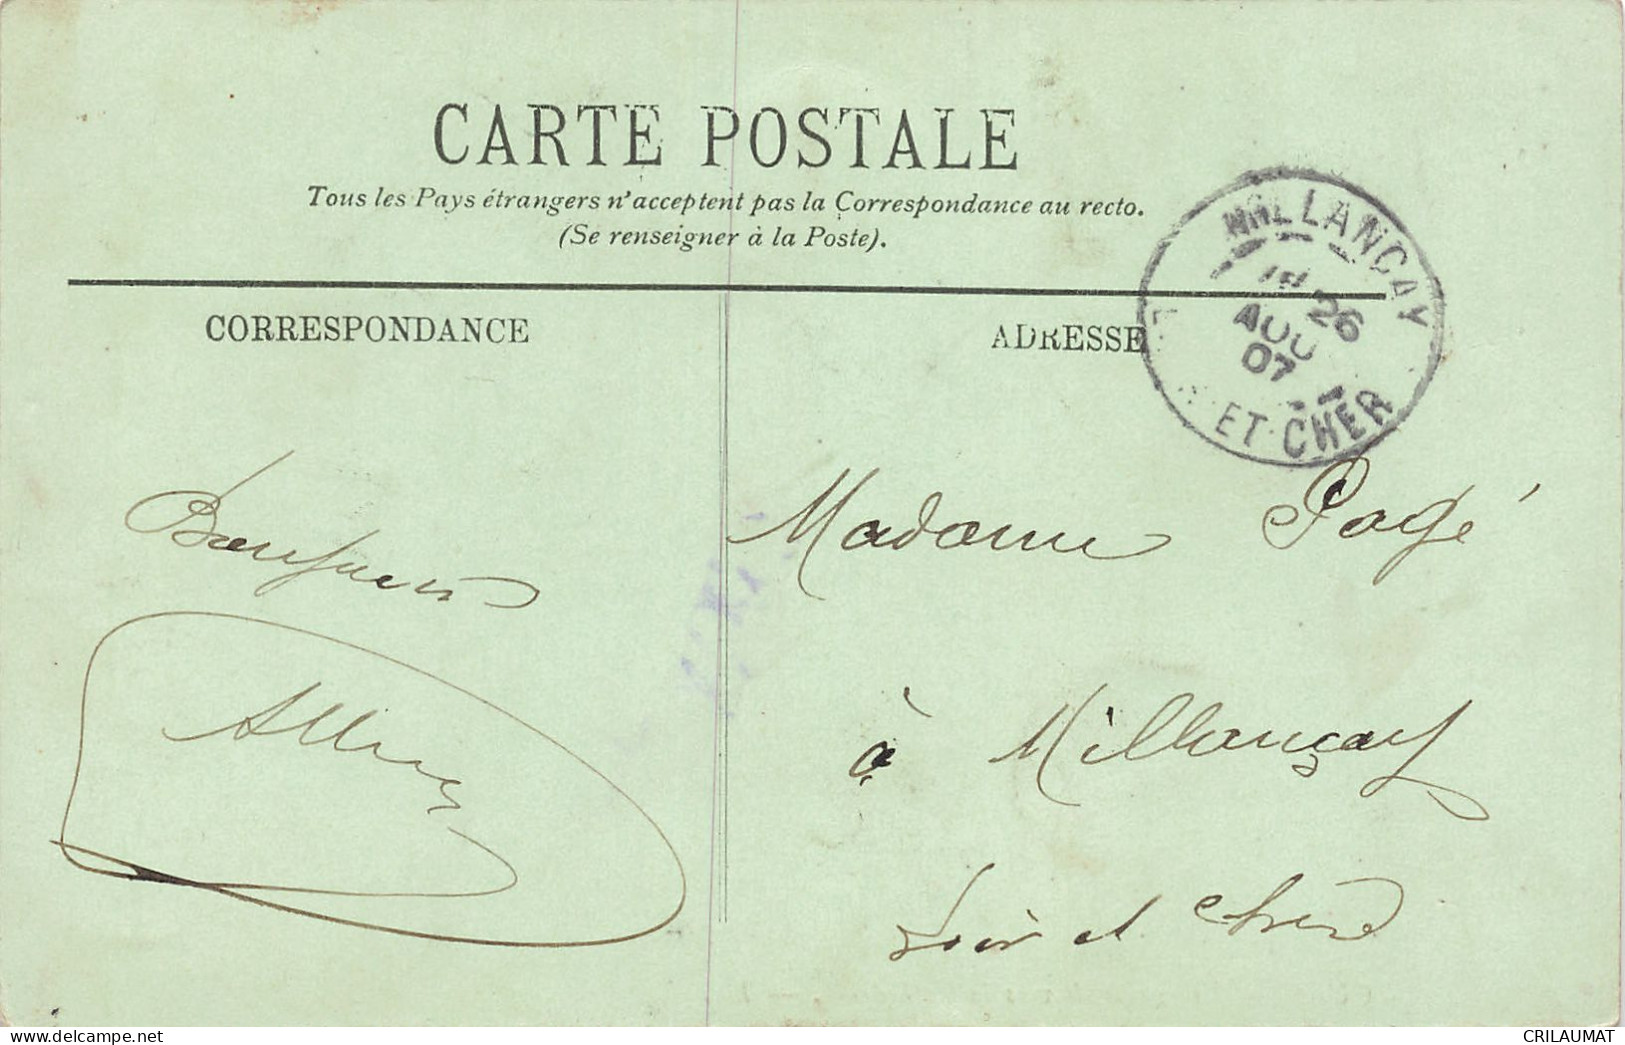 CARTE POSTALE
Tous les Pays étrangers n'acceptent pas la Correspondance au recto.
(Se renseigner à la Poste).
CORRESPONDANCE
ADRESSE
MILLANCAY
26
AOU
07
ET CHER
Madame Pagé
à Millançay
Loir et Cher
delcampe.net
CRILAUMAT